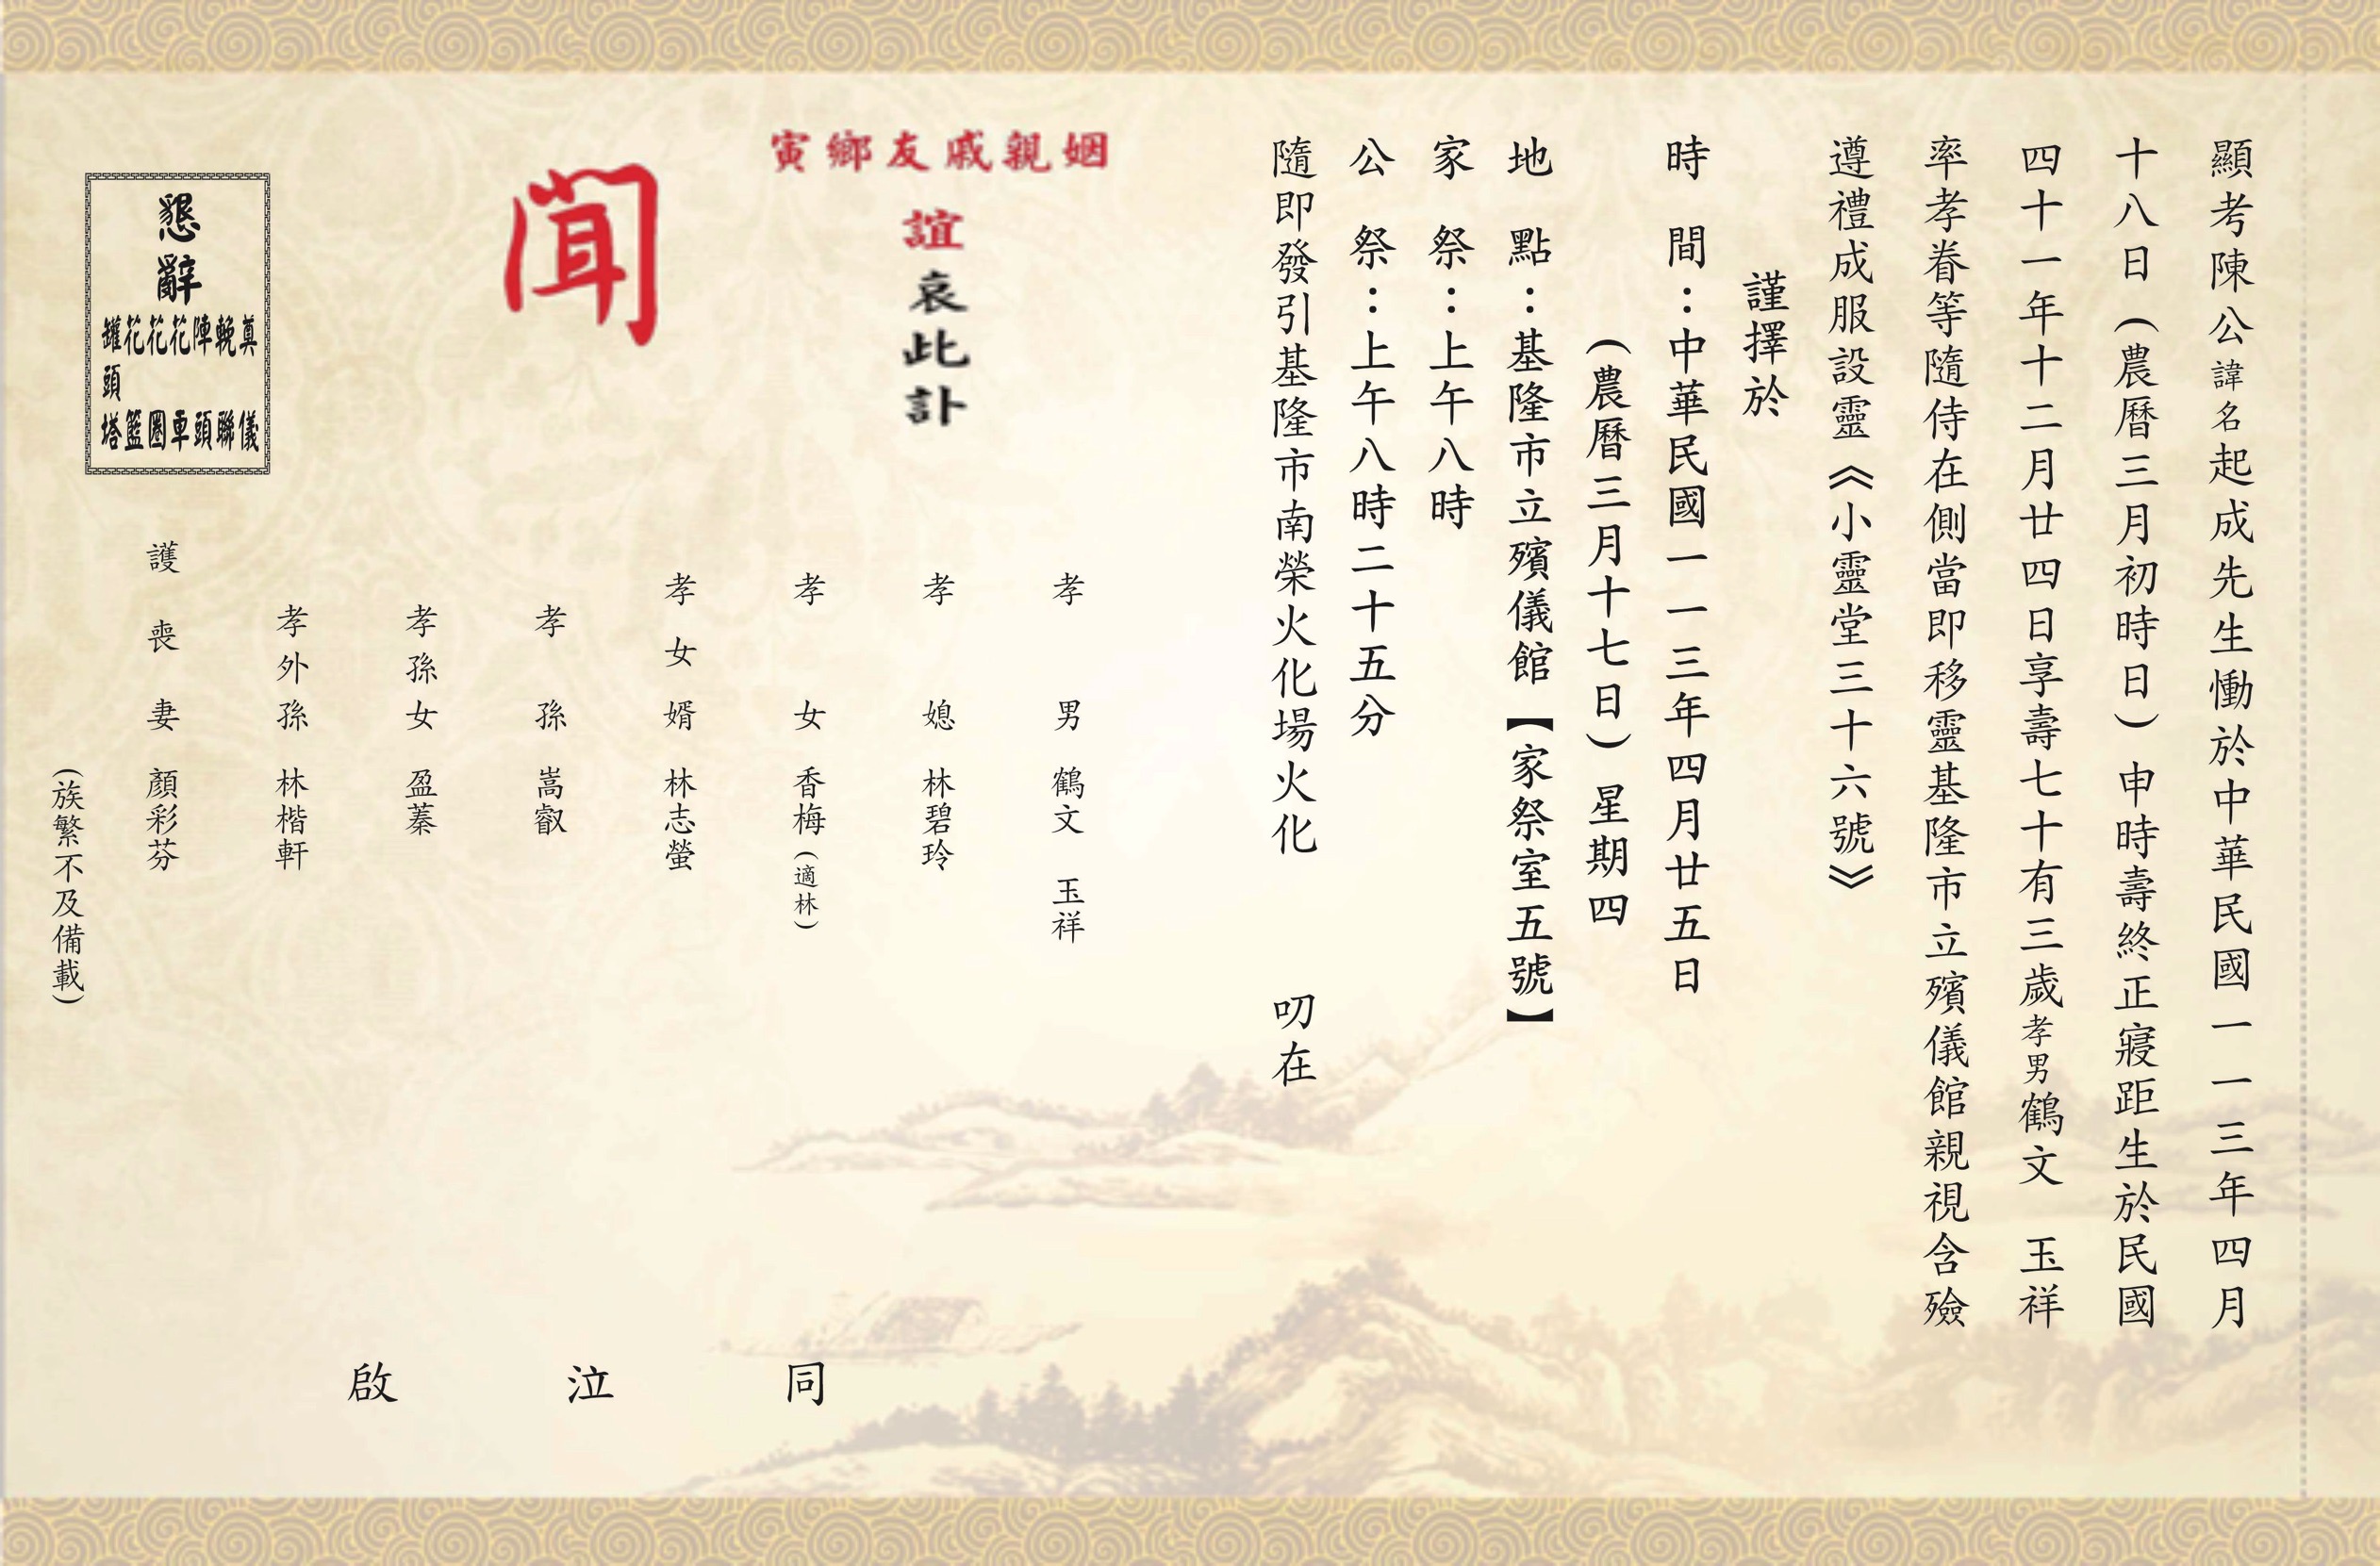 顯考陳公諱名起成先生慟於中華民國一一三年四月
十八日（農曆三月初時日）申時壽終正寢距生於民國
四十一年十二月廿四日享壽七十有三歲孝男鶴文　玉祥
率孝眷等隨侍在側當即移靈基隆市立殯儀館親視含殮
遵禮成服設靈《小靈堂三十六號》
謹擇於
時　間：中華民國一一三年四月廿五日
（農曆三月十七日）星期四
地　點：基隆市立殯儀館【家祭室五號】
家　祭：上午八時
公　祭：上午八時二十五分
隨即發引基隆市南榮火化場火化　　叨在
姻親戚友鄉寅
誼哀此訃
聞
孝男　鶴文　玉祥
孝媳　林碧玲
孝女　香梅（適林）
孝女婿　林志螢
孝孫　嵩叡
孝孫女　盈蓁
孝外孫　林楷軒
護喪妻　顏彩芬
（族繁不及備載）
同泣啟
懇辭
奠儀
輓聯
陣頭
花車
花圈
花籃
罐頭塔